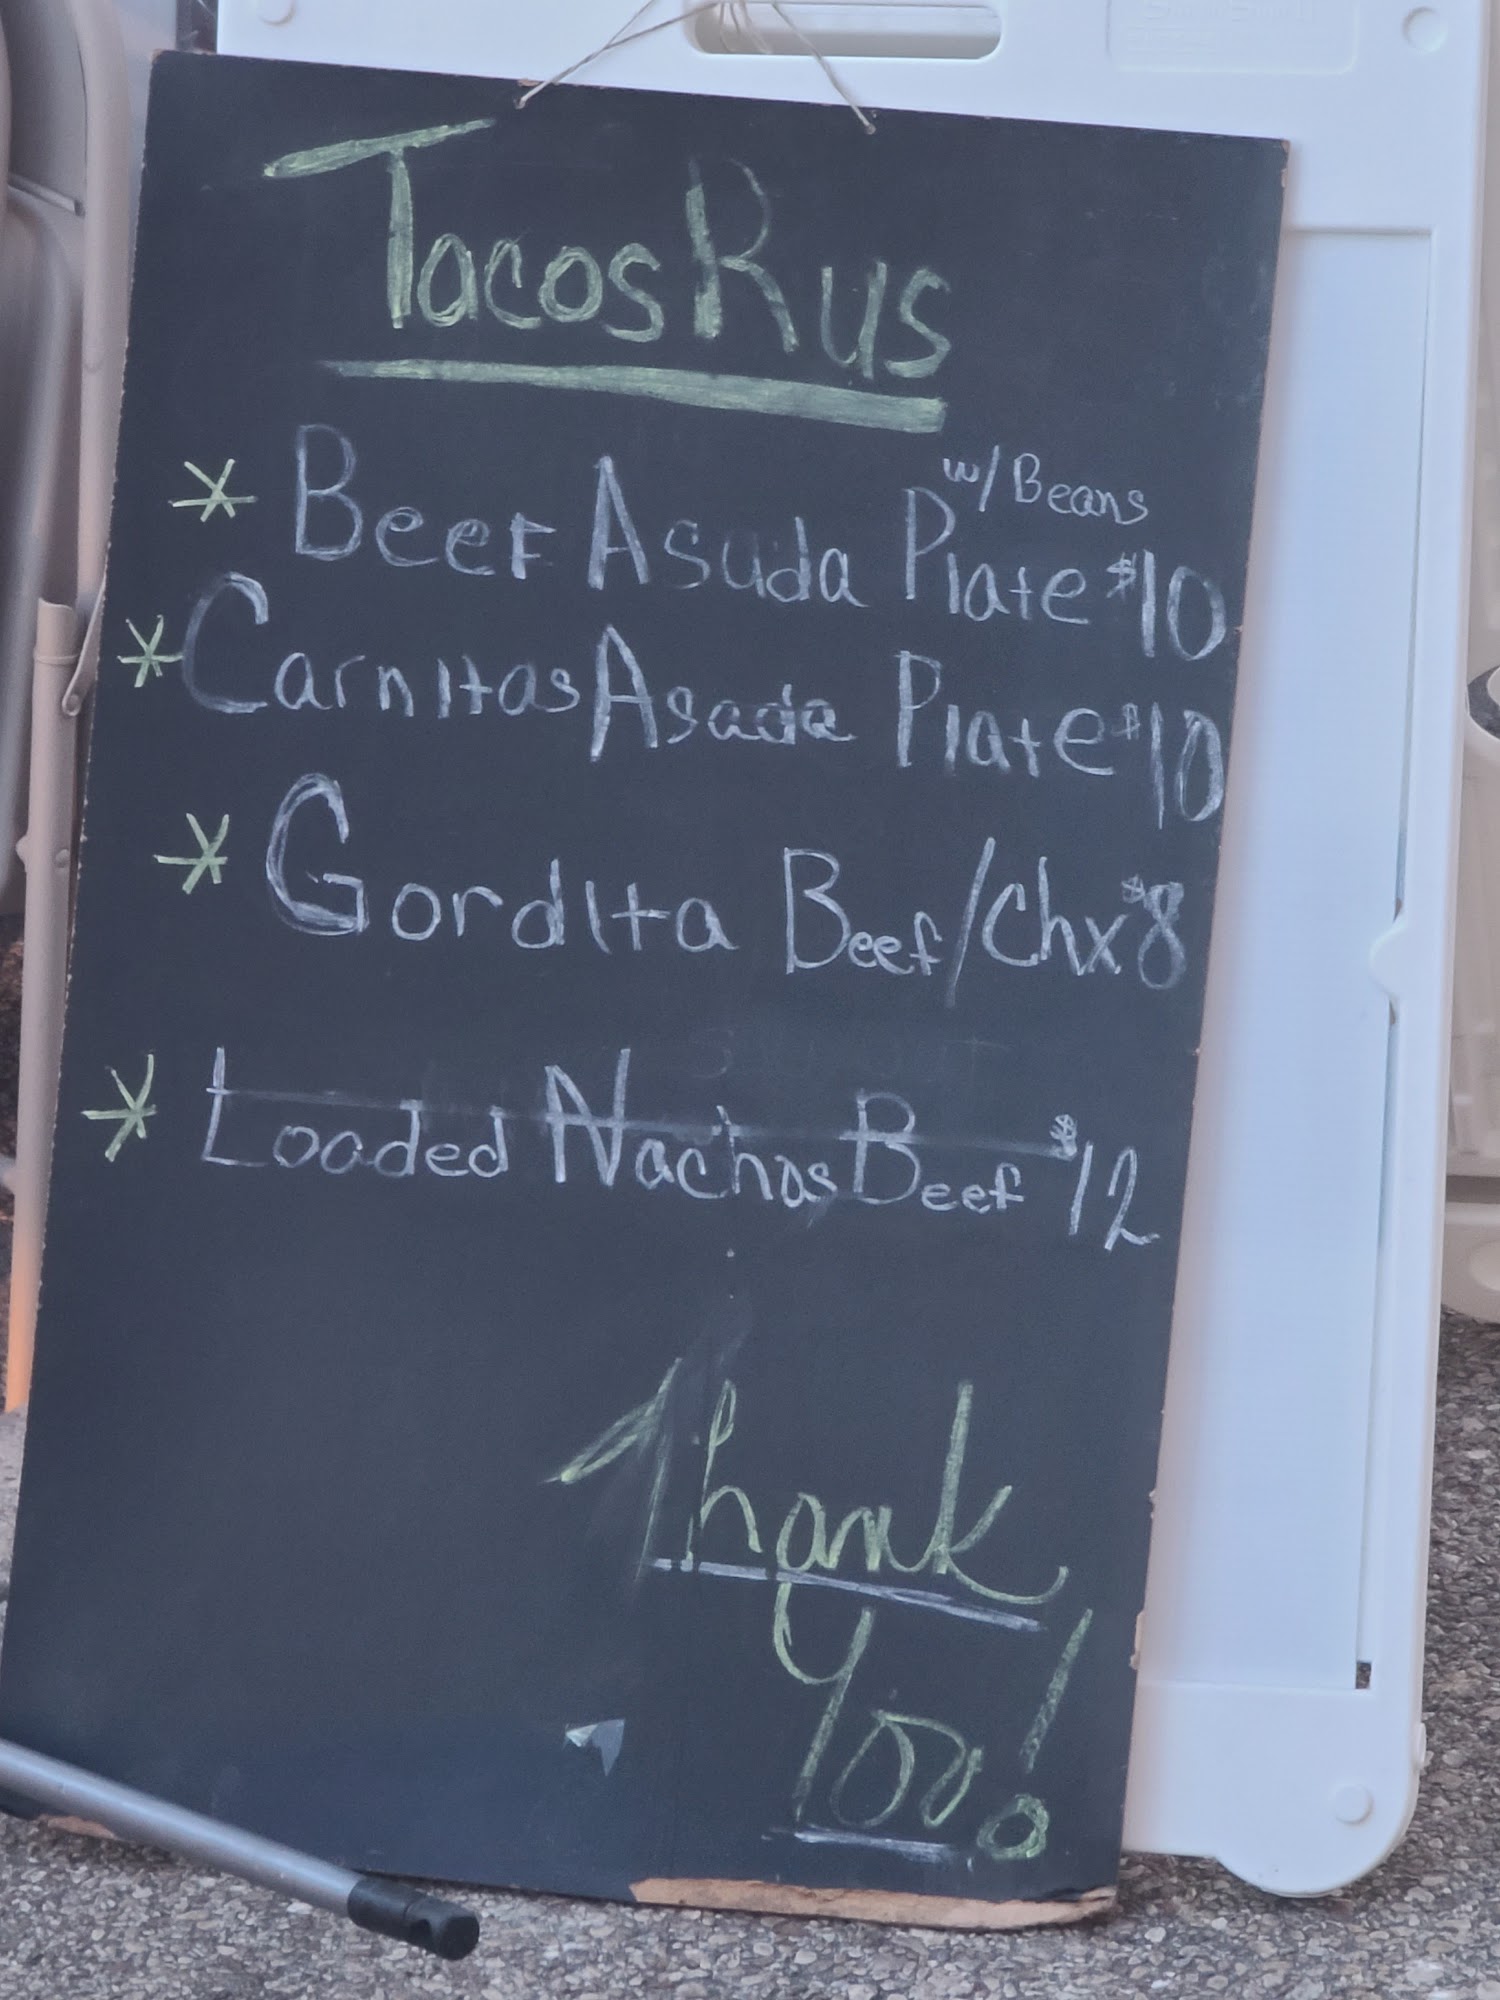 Tacos R us
w/Beans
* Beef Asuda Plate $10
* Carnitas Asada Plate $10
* Gordita Beef/Chx $8
* Loaded Nachos Beef $12
Thank
You!